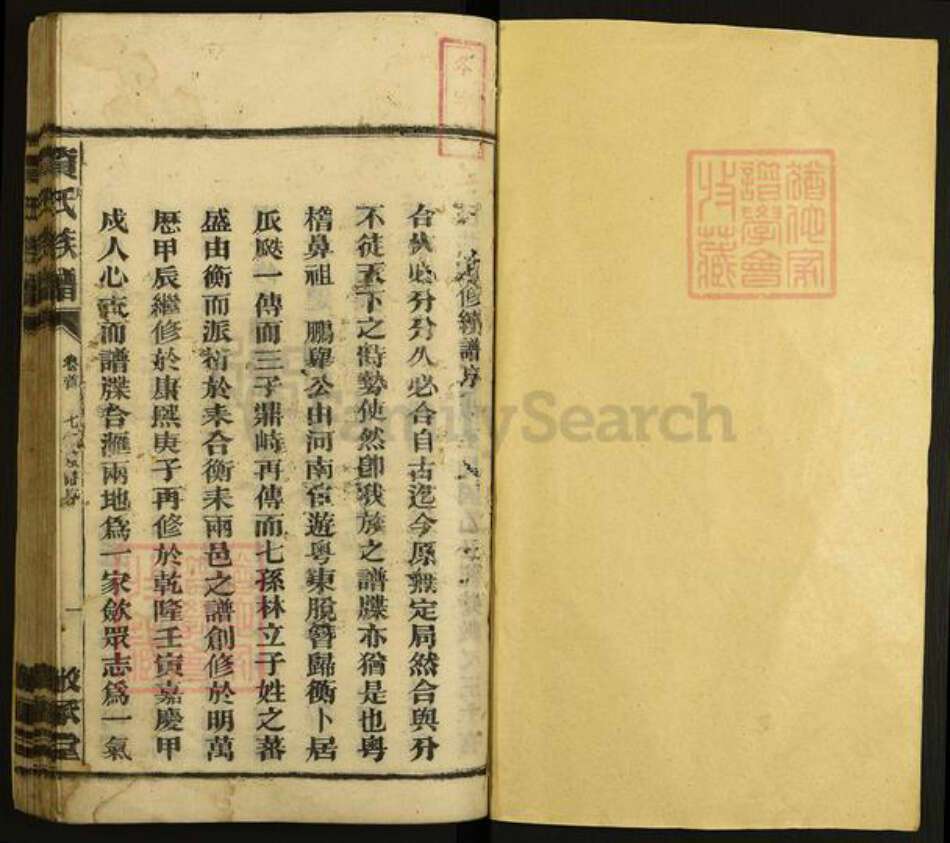 修續譜序
合久必分分久必合自古迄今原無定局然合與分
不徒天下之時勢使然卽我族之譜牒亦猶是也粵
稽鼻祖 鵬舉公由河南宦遊粵東脫簪歸衡卜居
瓜瓞一傳而三子鼎峙再傳而七孫林立子姓之蕃
盛由衡而派衍於耒合衡耒兩邑之譜創修於明萬
歷甲辰繼修於康熙庚子再修於乾隆壬寅嘉慶甲
戍人心 而譜牒合滙兩地爲一家斂眾志爲一氣
氏族譜
卷首
七修
一
堂
譜學會
收藏
FamilySearch